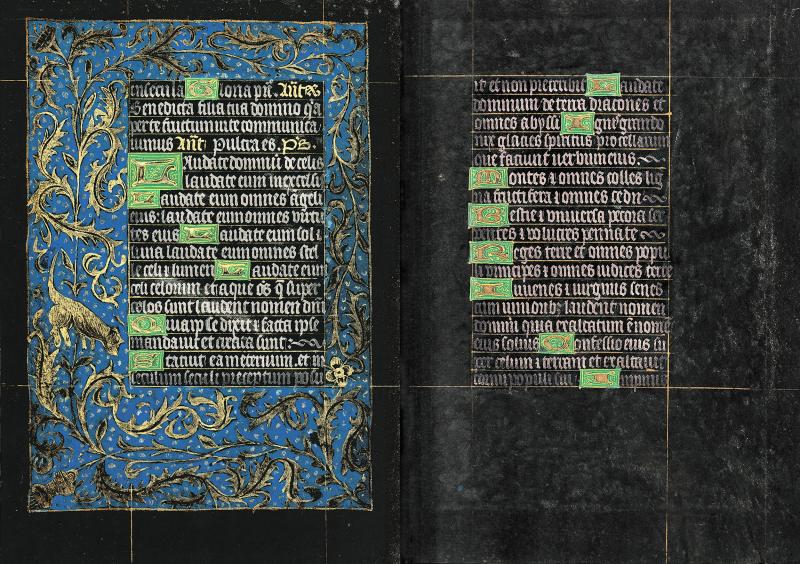 in secula Gloria pri. Ant.
Benedicta filia tua domino q̄a
per te fructum vite communica
vimus Ant. Pulcra es. ps.
Laudate dominū de celis
laudate eum in excelsis
Laudate eum omnes angeli
eius: laudate eum omnes virtu
tes eius Laudate eum sol ⁊
luna laudate eum omnes stel
le celi ⁊ lumen Laudate eum
celi celorum et aque os̄ q̄ super
celos sunt laudent nomen dn̄i
Quia ipse dixit ⁊ facta ipse
mandavit et creata sunt
Statuit ea in eternum et in
seculum seculi preceptum posu
it et non preteribit Laudate
dominum de terra dracones et
omnes abyssi Ignis grando
nix glacies spiritus procellarum
que faciunt verbum eius
Montes ⁊ omnes colles lig
na fructifera ⁊ omnes cedri
Bestie ⁊ universa pecora ser
pentes ⁊ volucres pennate
Reges terre et omnes popu
li principes ⁊ omnes iudices terre
Iuvenes ⁊ virgines senes
cum iunioribus laudent nomen
domini quia exaltatum ē nomē
eius solius Confessio eius su
per celum ⁊ terram et exaltavit
cornu populi sui